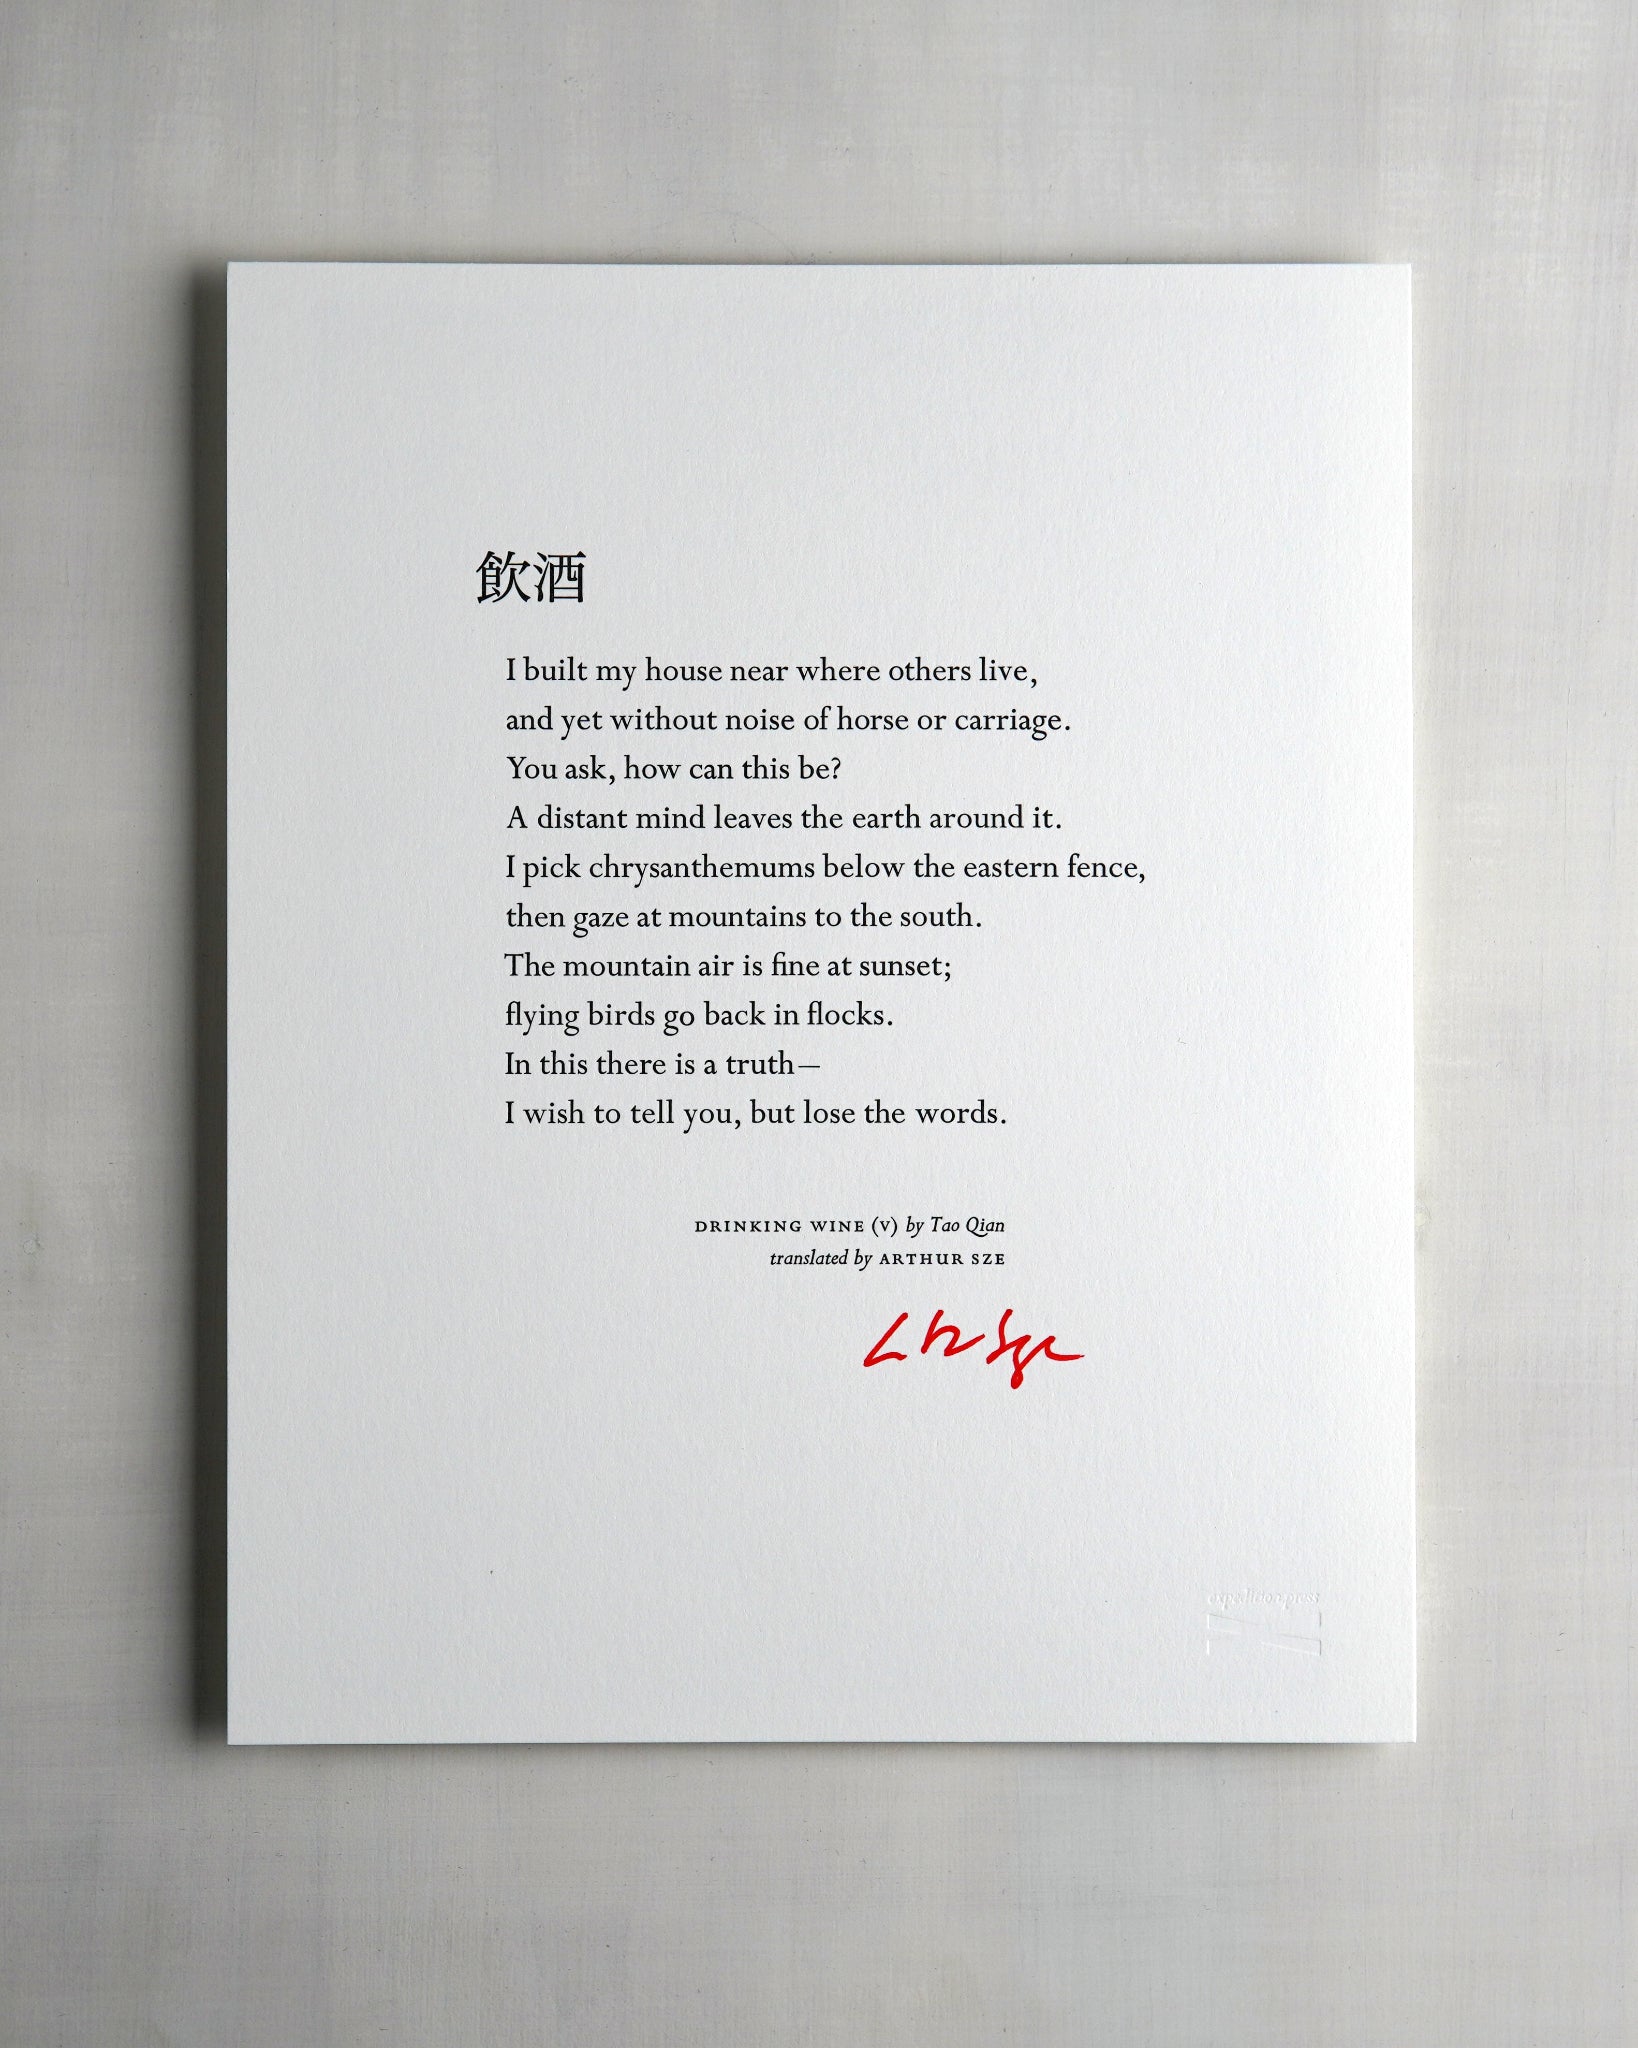 飲酒
I built my house near where others live,
and yet without noise of horse or carriage.
You ask, how can this be?
A distant mind leaves the earth around it.
I pick chrysanthemums below the eastern fence,
then gaze at mountains to the south.
The mountain air is fine at sunset;
flying birds go back in flocks.
In this there is a truth—
I wish to tell you, but lose the words.
DRINKING WINE (V) by Tao Qian
translated by ARTHUR SZE
expedition press